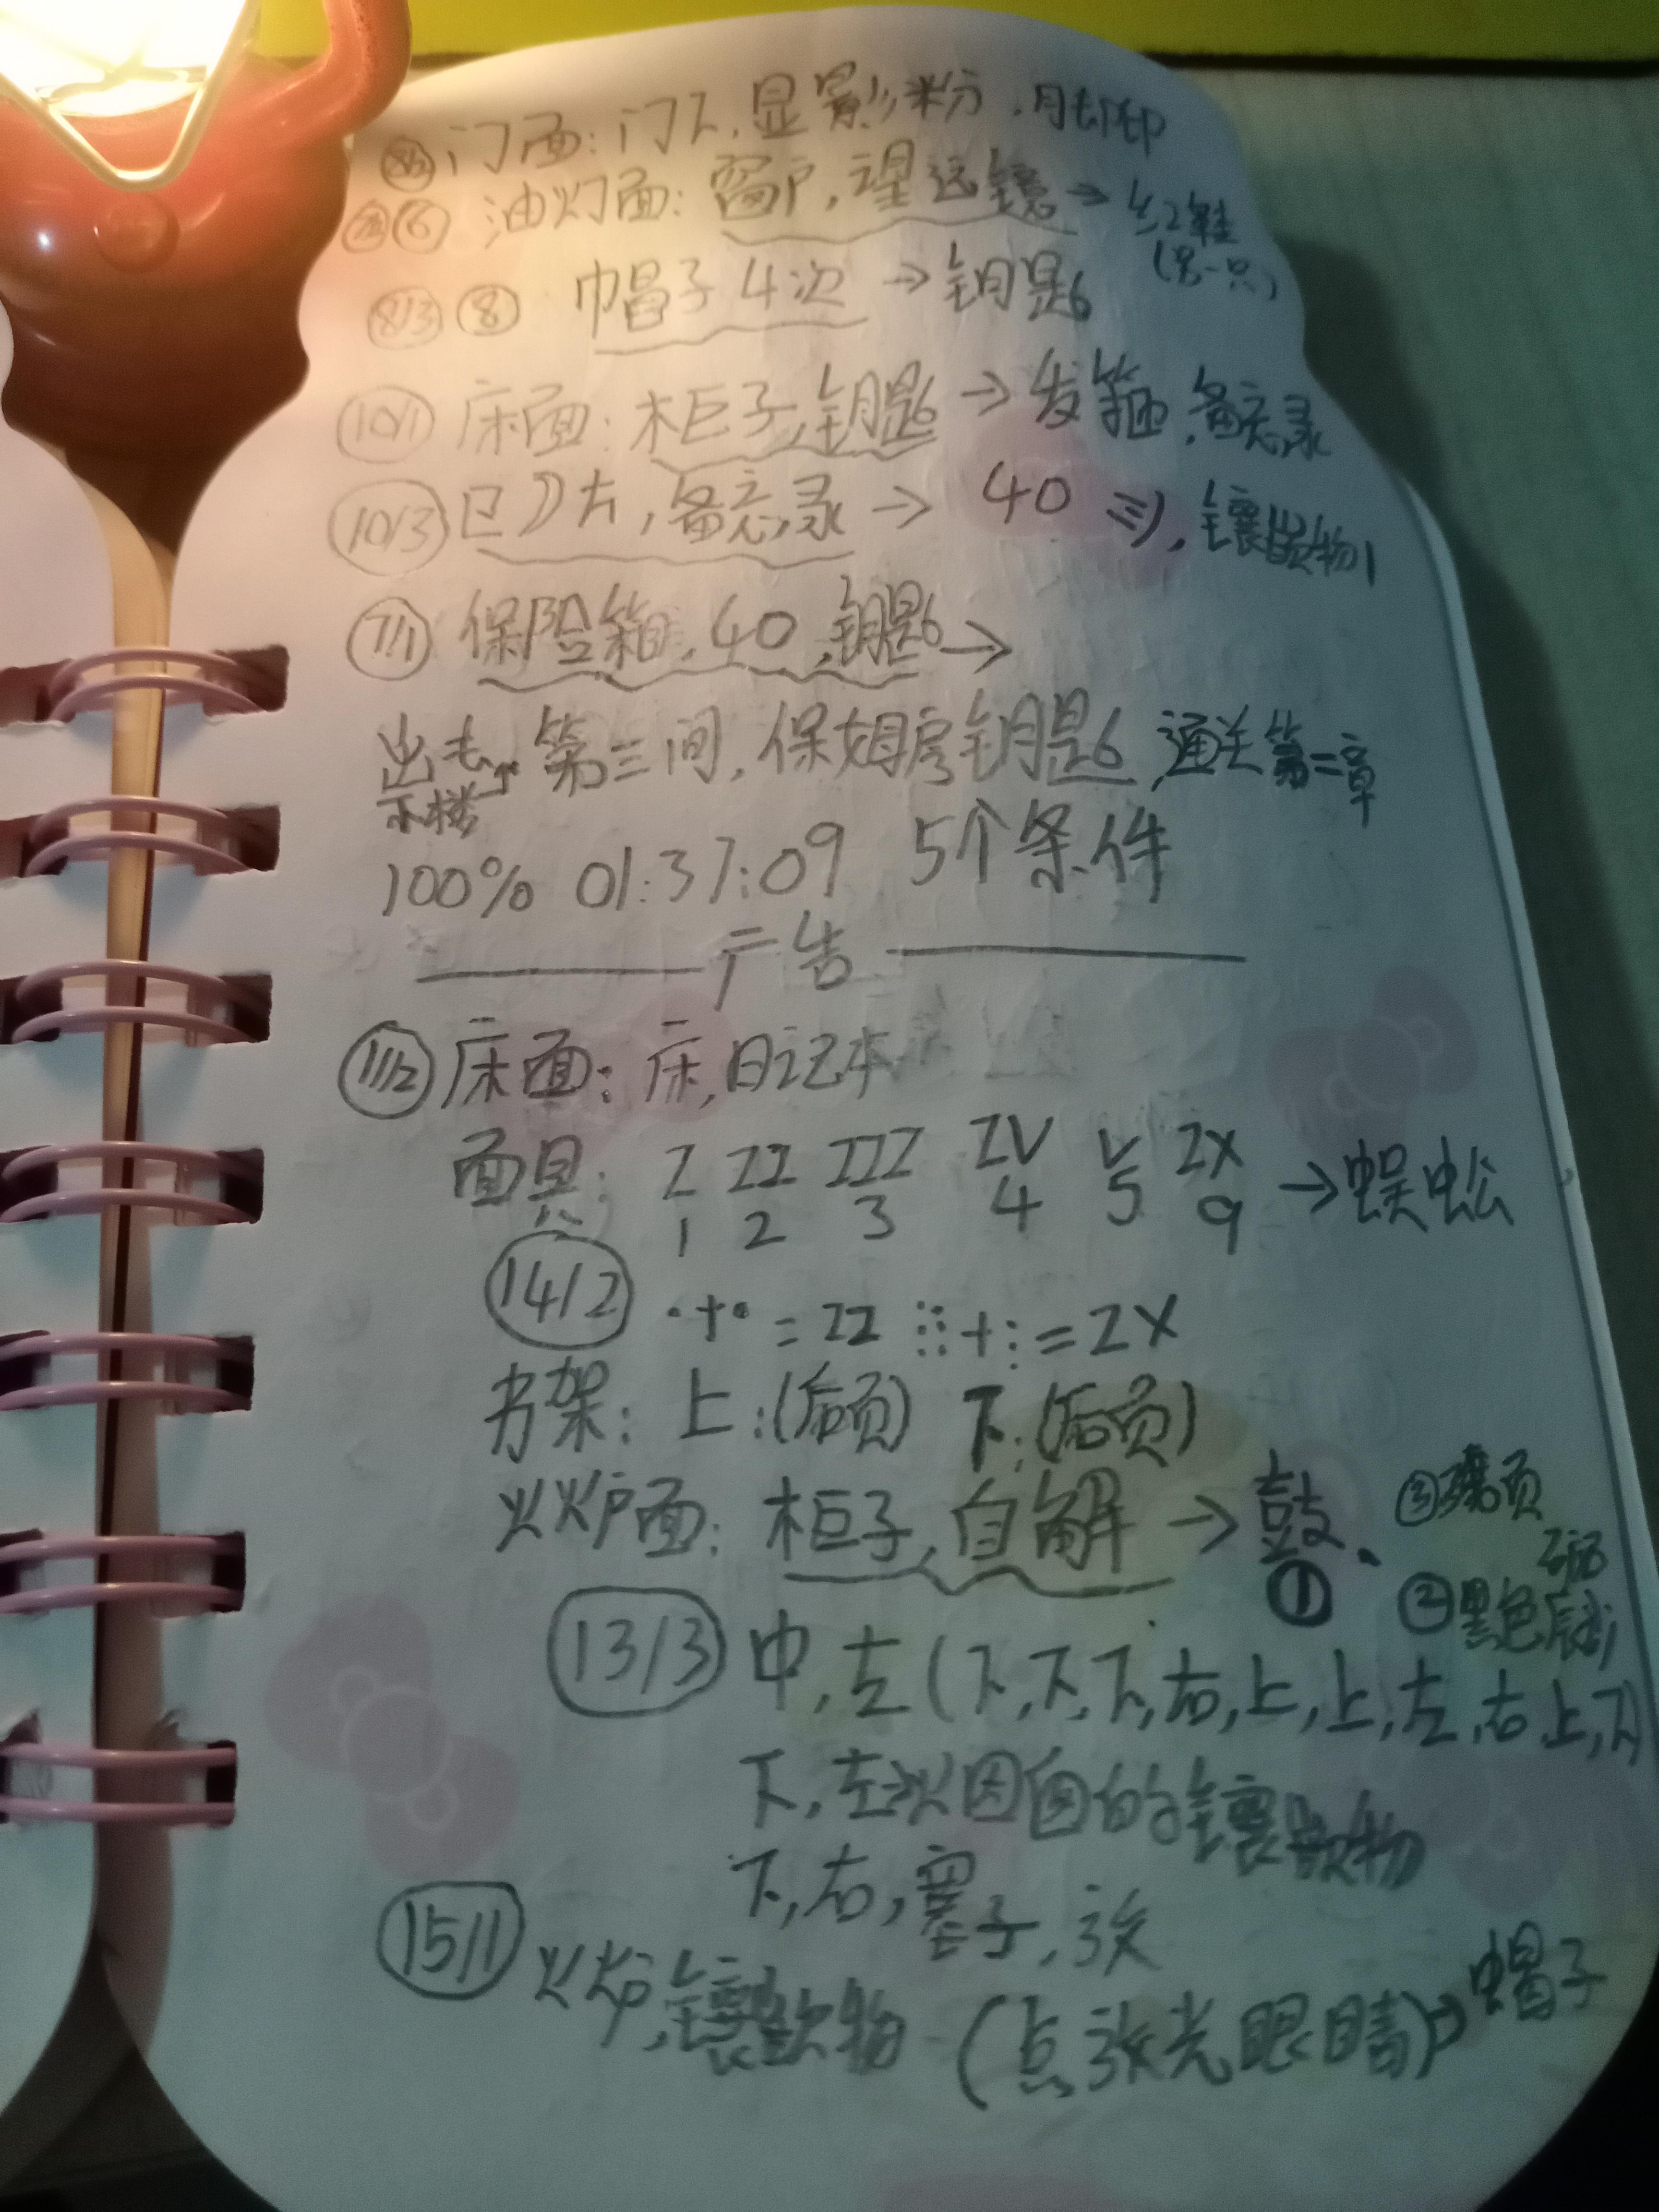 门面：门下，显影粉，脚印
⑥ 油灯面：窗户，望远镜→红鞋
(另一只)
8/3 ⑧ 帽子4次→钥匙
10/1 床面：柜子，钥匙→发箍，备忘录
10/3 卡片，备忘录→40，镶嵌物1
7/1 保险箱，40，钥匙→
出去，第三间，保姆房钥匙，通关第二章
下楼
100% 01:37:09 5个条件
广告
11/2 床面：床，日记本
面具：I II III IV V IX→蜈蚣
1 2 3 4 5 9
14/2 ·+·=II ⁝⁝+⁝=IX
书架：上：(后页) 下：(后页)
火炉面：柜子，自解→鼓、③残页
① ②黑色
13/3 中，左(下,下,下,右,上,上,左,右,上,下)
下，左，的镶嵌物
下，右，塞子，放
15/1 火炉，镶嵌物 (点放光眼睛)→帽子